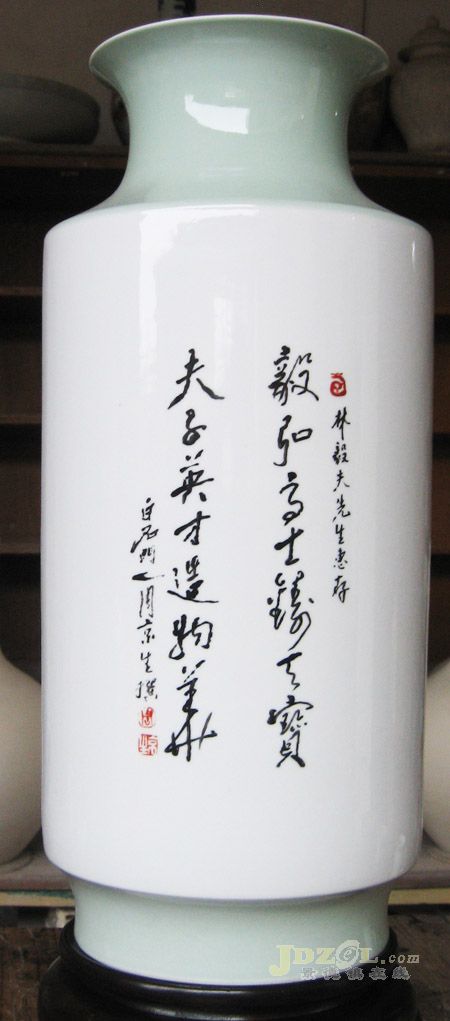 林毅夫先生惠存
毅弘高士铸天寶
夫子英才造物華
白石門人周京生撰
JDZOL.com
景德镇在线